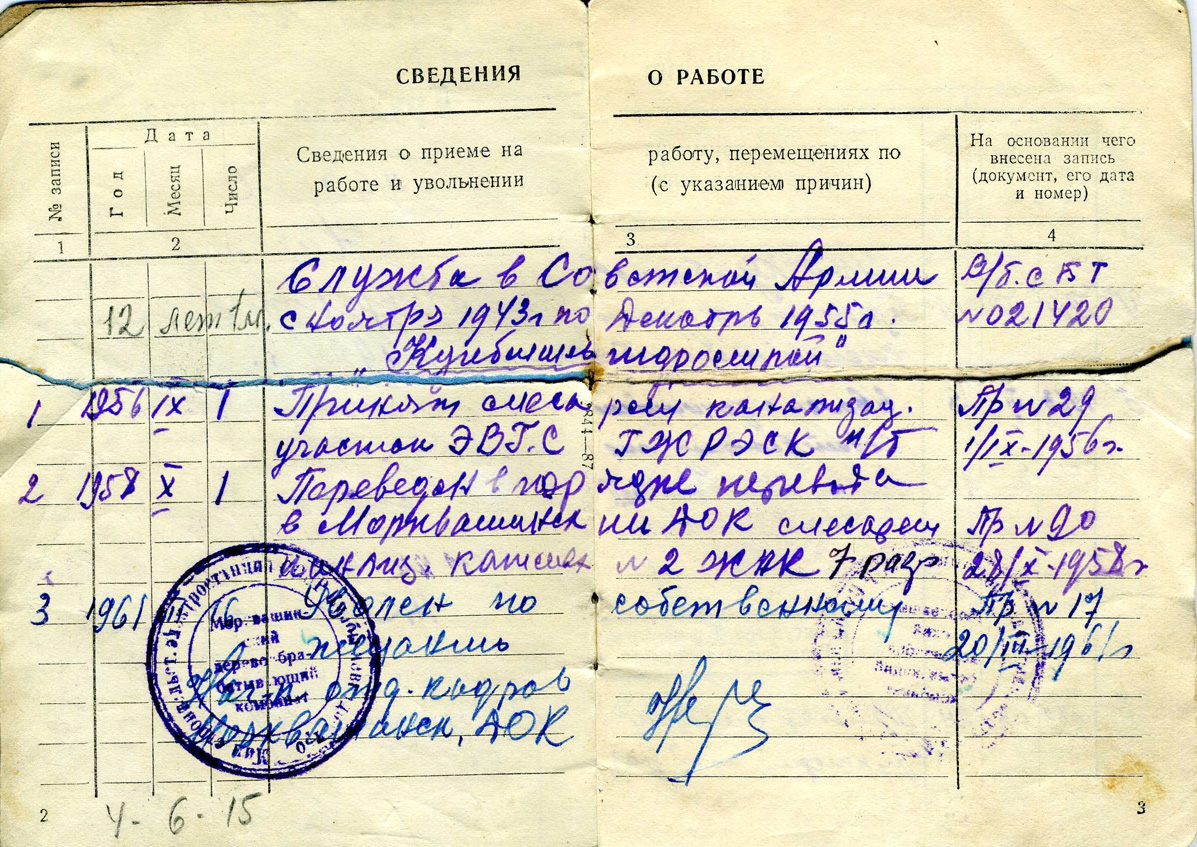 СВЕДЕНИЯ О РАБОТЕ
№ записи
Дата
Год
Месяц
Число
Сведения о приеме на работу, перемещениях по
работе и увольнении (с указанием причин)
На основании чего
внесена запись
(документ, его дата
и номер)
1 2 3 4
Служба в Советской Армии В/б. с
12 лет 1м. с Ноября 1943г по Декабрь 1955г. №021420
„Куйбышевгидрострой"
1 1956 IX 1 Принят слесарем канализац. Пр №29
участок ЭВГ.С ГЖРЭСК 1/IX-1956г.
2 1958 X 1 Переведен в порядке перевода
в Морквашинский ДОК слесарем Пр №90
№2 ЖКК 7 разр 28/IX-1958г
3 1961 16 Уволен по собственному Пр №17
желанию 20/III-1961г
Нач. отд. кадров
Морквашинск. ДОК
Морквашин-
ский
деревообра-
батывающий
комбинат
3844—87
2
4-6-15
3